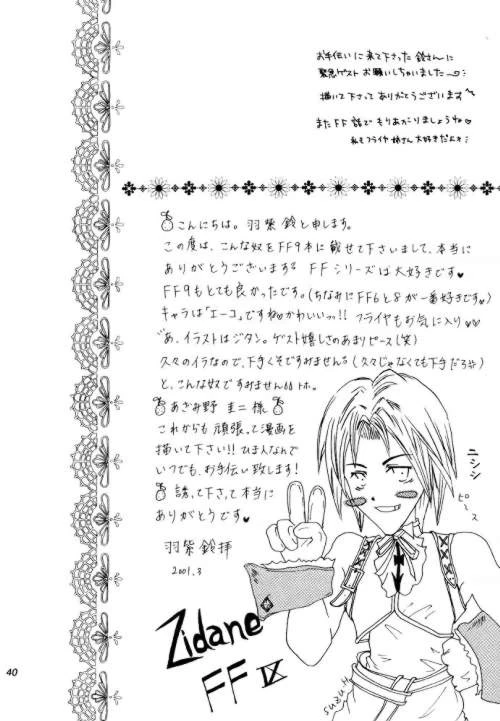 お手伝いに来て下さった鈴さんに
緊急ゲストお願いしちゃいました
描いて下さってありがとうございます
またFF話でもりあがりましょうね
私もフライヤ姉さん大好きだよ
こんにちは。羽紫鈴と申します。
この度は、こんな奴をFF9本に載せて下さいまして、本当に
ありがとうございます FFシリーズは大好きです♥
FF9もとても良かったです。(ちなみにFF6と8が一番好きです♥)
キャラは「エーコ」ですね♥かわいいっ!! フライヤもお気に入り♥♥
あ、イラストはジタン。ゲスト嬉しさのあまりピース(笑)
久々のイラなので、下手くそですみません(久々じゃなくても下手だろ)
と、こんな奴ですみません トホ。
あざみ野 圭二 様
これからも頑張って漫画を
描いて下さい!! ひま人なんで
いつでも、お手伝い致します!
誘って下さって本当に
ありがとうです♥
羽紫鈴拝
2001.3
ニシシ
ピース
Zidane
FF IX
suzu
40